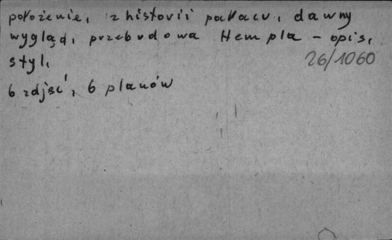 położenie, z historii pałacu, dawny
wygląd, przebudowa Hempla - opis,
styl,
26/1060
6 zdjęć, 6 planów